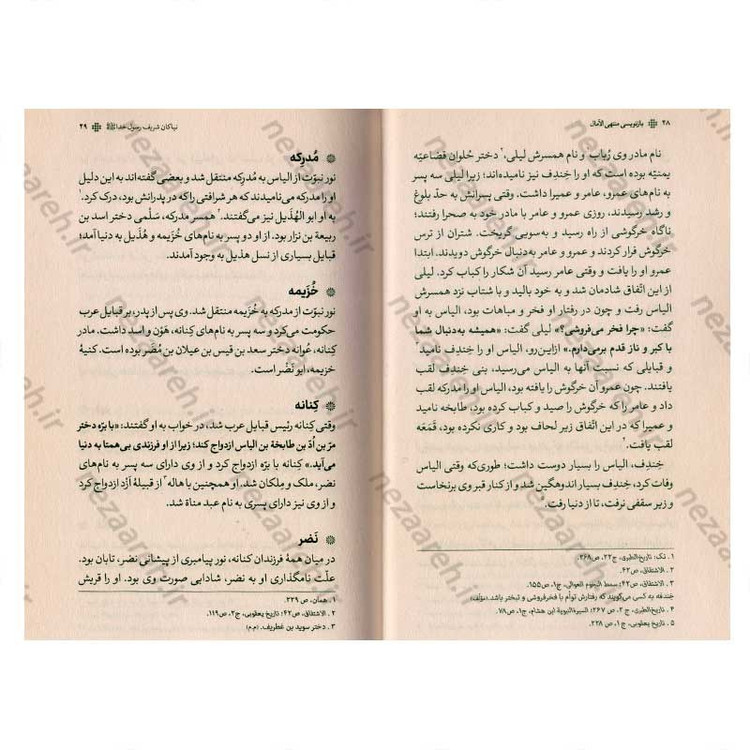 ۲۸ بازنویسی منتهی الآمال
نام مادر وی رُباب و نام همسرش لیلی، دختر حُلوان قضاعیّه
یمنیّه بوده است که او را خِندِف نیز نامیده‌اند؛ زیرا لیلی سه پسر
به نام‌های عمرو، عامر و عمیرا داشت. وقتی پسرانش به حدّ بلوغ
و رشد رسیدند، روزی عمرو و عامر با مادر خود به صحرا رفتند؛
ناگاه خرگوشی از راه رسید و به‌سویی گریخت. شتران از ترس
خرگوش فرار کردند و عمرو و عامر به‌دنبال خرگوش دویدند. ابتدا
عمرو او را یافت و وقتی عامر رسید آن شکار را کباب کرد. لیلی
از این اتّفاق شادمان شد و به خود بالید و با شتاب نزد همسرش
الیاس رفت و چون در رفتار او فخر و مباهات بود، الیاس به او
گفت: «چرا فخر می‌فروشی؟» لیلی گفت: «همیشه به‌دنبال شما
با کبر و ناز قدم برمی‌دارم.» ازاین‌رو، الیاس او را خِندِف نامید
و قبایلی که نسبت آنها به الیاس می‌رسید، بنی خندِف لقب
یافتند. چون عمرو آن خرگوش را یافته بود، الیاس او را مدرکه لقب
داد و عامر را که خرگوش را صید و کباب کرده بود، طابخه نامید
و عمیرا که در این اتّفاق زیر لحاف بود و کاری نکرده بود، قَمَعَه
لقب یافت.
خِندِف، الیاس را بسیار دوست داشت؛ طوری‌که وقتی الیاس
وفات یافت، خندِف بسیار اندوهگین شد و از کنار قبر وی برنخاست
و زیر سقفی نرفت، تا از دنیا رفت.
۱. نک: تاریخ‌الطبری، ج۲۲، ص۳۶۸.
۲. الاشتقاق، ص۴۲.
۳. الاشتقاق، ص۴۲؛ سمط النجوم العوالی، ج۱، ص۱۵۵.
خندفه به کسی می‌گویند که رفتارش توأم با فخرفروشی و تبختر باشد. (مؤلف)
۴. تاریخ‌الطبری، ج ۲، ص ۲۶۷؛ السیرةالنبویة ابن هشام، ج۱، ص۷۹.
۵. تاریخ یعقوبی، ج۱، ص ۲۲۸.
نیاکان شریف رسول خدا ﷺ ۲۹
مُدرِکه
نور نبوّت از الیاس به مُدرِکه منتقل شد و بعضی گفته‌اند به این دلیل
او را مدرکه می‌نامیدند که هر شرافتی را که در پدرانش بود، درک کرد.۱
به او ابو الهُذَیل نیز می‌گفتند.۲ همسر مدرکه، سَلْمی دختر اسد بن
ربیعة بن نزار بود. از او دو پسر به نام‌های خُزَیمه و هُذَیل به دنیا آمد؛
قبایل بسیاری از نسل هذیل به وجود آمدند.
خُزَیمه
نور نبوّت از مدرکه به خُزَیمه منتقل شد. وی پس از پدر، بر قبایل عرب
حکومت می‌کرد و سه پسر به نام‌های کِنانه، هَوْن و اسد داشت. مادر
کِنانه، عُوانه دختر سعد بن قیس بن عیلان بن مُضَر بوده است. کنیۀ
خزیمه، ابو نَضْر است.
کِنانه
وقتی کِنانه رئیس قبایل عرب شد، در خواب به او گفتند: «با بَرّه دختر
مرّ بن اُدّ بن طابخة بن الیاس ازدواج کند؛ زیرا از او فرزندی بی‌همتا به دنیا
می‌آید.» کِنانه با بَرّه ازدواج کرد و از وی دارای سه پسر به نام‌های
نضر، ملک و مِلکان شد. او همچنین با هاله۳ از قبیلۀ اَزْد ازدواج کرد
و از وی نیز دارای پسری به نام عبد مناة شد.
نَضر
در میان همۀ فرزندان کنانه، نور پیامبری از پیشانی نضر، تابان بود.
علّت نامگذاری او به نضر، شادابی صورت وی بود. او را قریش
۱. همان، ص ۲۲۹.
۲. الاشتقاق، ص۴۲؛ تاریخ یعقوبی، ج۲، ص۱۱۹.
۳. دختر سوید بن غطریف. (م.م)
nezaareh.ir